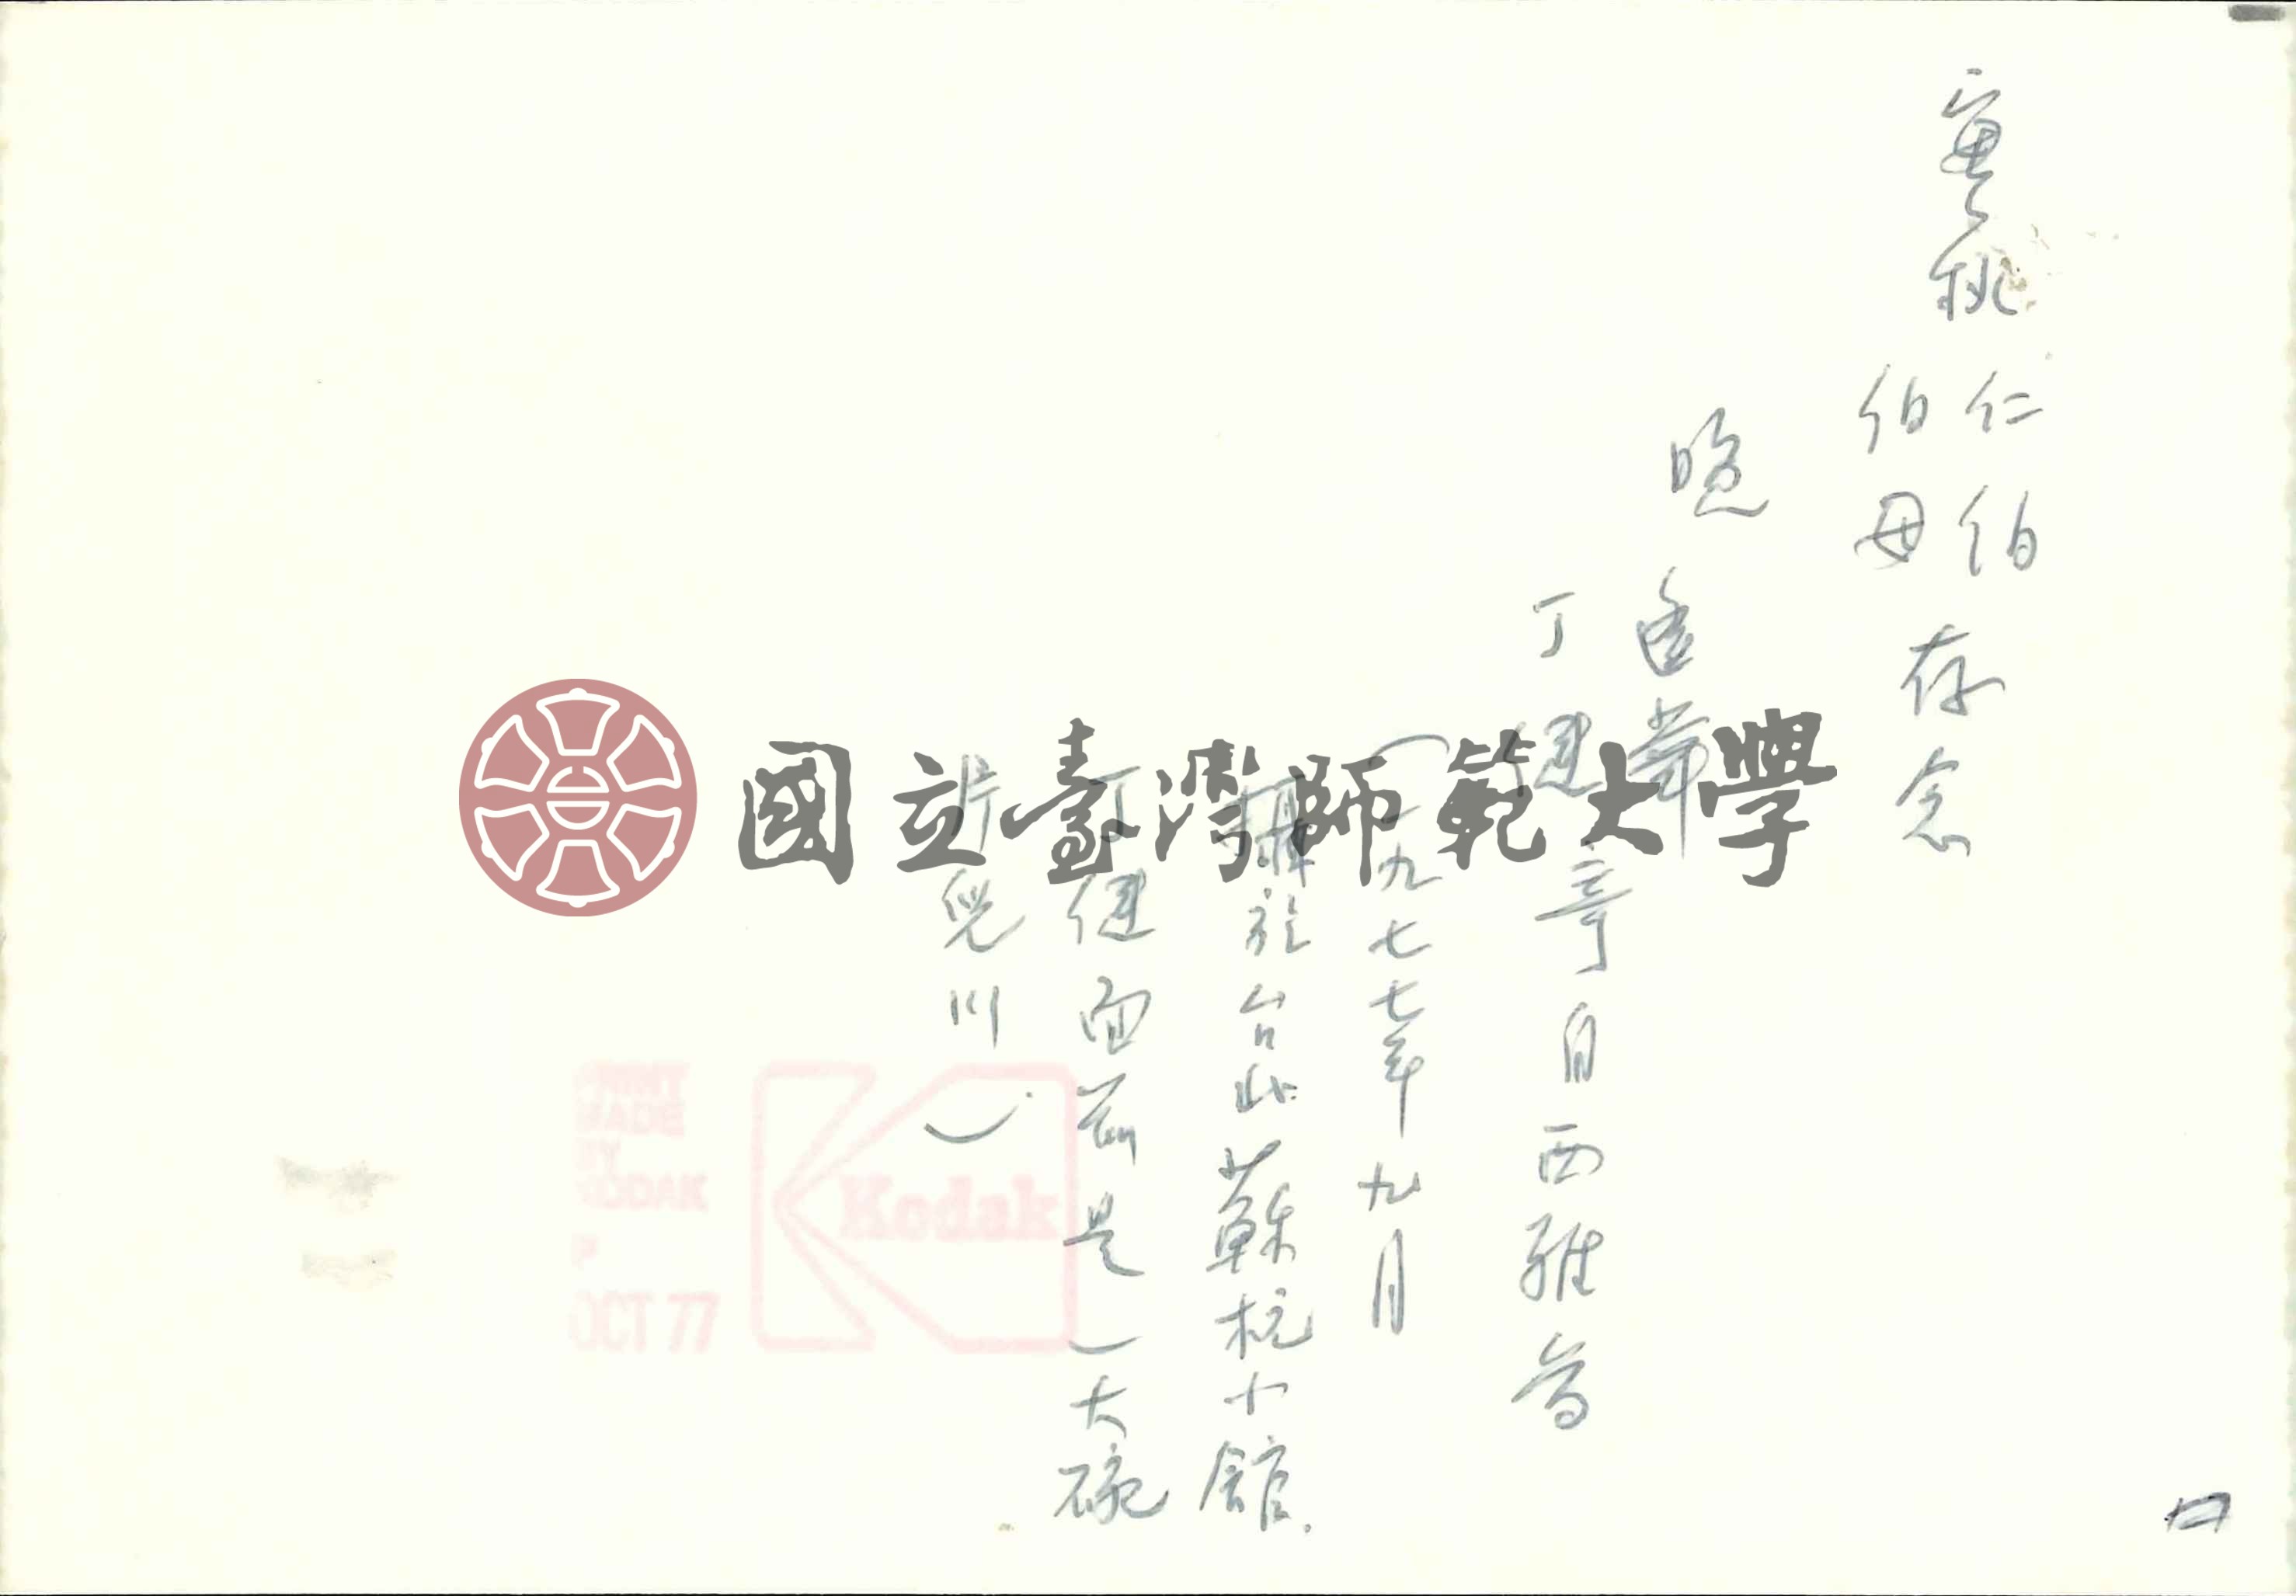 實秋仁伯
伯母
存念
晚
丁 健 寄自西雅旨
（一九七七年九月
攝於台北蘇杭小館.
丁健面前是一大碗
片兒川）.
國立臺灣師範大學
PRINT
MADE
BY
KODAK
P
OCT 77
Kodak